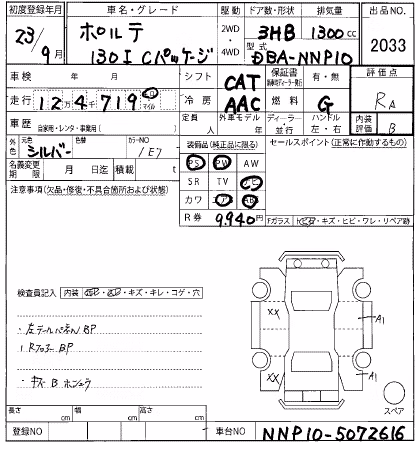 初度登録年月 車名・グレード 駆動 ドア数・形状 排気量 出品NO
23/9月 ポルテ 2WD・4WD 3HB 1300cc 2033
130I Cパッケージ 型式 DBA-NNP10
車検 年 月 シフト CAT 保証書 有・無 評価点
走行 12万4千719 km マイル 冷房 AAC 燃料 G RA
車歴 自家用・レンタ・事業用( ) 定員 人 外車モデル 年 ディーラー・並行 ハンドル 左・右 内装評価 B
外色 元色 シルバー 色替 カラーNO 1E7 装備品(純正品に限る) セールスポイント(正常に作動するもの)
名義変更期限 月 日迄 積載 t PS PW AW
注意事項(欠品・修復・不具合箇所および状態) SR TV ナビ
カワ エアB ABS
R券 9,940円 Fガラス トビキズ・キズ・ヒビ・ワレ・リペア跡
検査員記入 内装 ・キズ・キレ・コゲ・穴
・左テールパネル BP
・Rフロアー BP
・キズ B ホシュウ
XX A1
XX A1
スペア
長さ cm 幅 cm 高さ cm
登録NO 車台NO NNP10-5072616